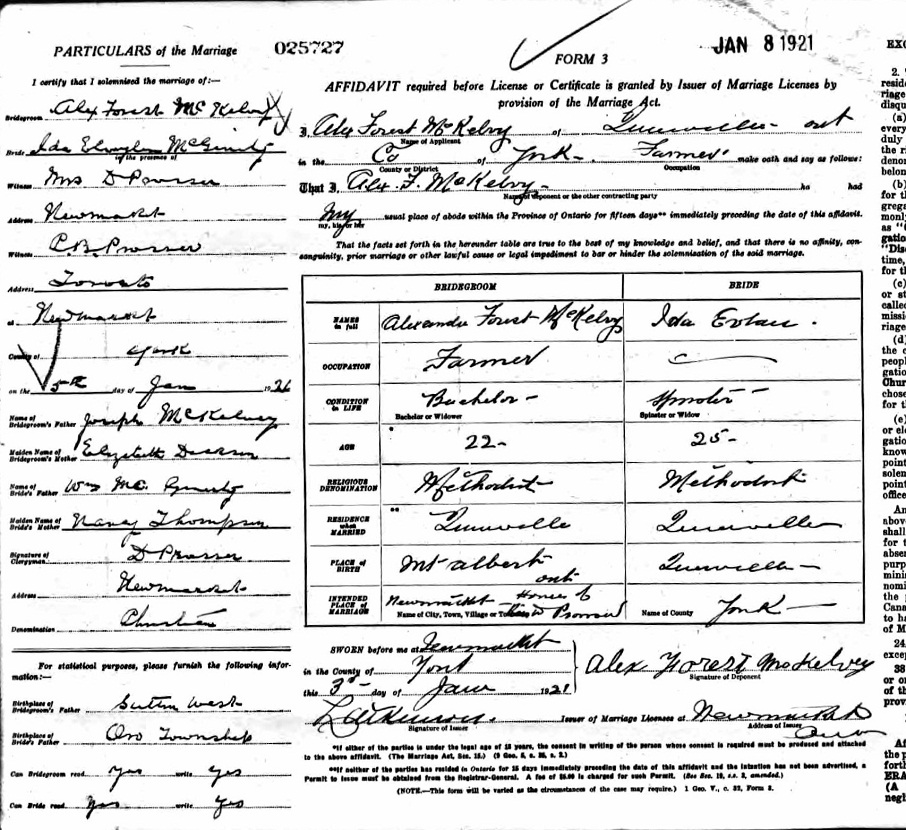 PARTICULARS of the Marriage
025727
I certify that I solemnized the marriage of:—
Bridegroom Alex Forest McKelvey
Bride Ida
in the presence of
Witness Mrs D Prosser
Address Newmarket
Witness C.B. Prosser
Address Toronto
at Newmarket
County of York
on the 5th day of Jan 1921
Name of Bridegroom's Father Joseph McKelvey
Maiden Name of Bridegroom's Mother Elizabeth
Name of Bride's Father Wm Mc
Maiden Name of Bride's Mother Nancy Thompson
Signature of Clergyman D Prosser
Address Newmarket
Denomination Christian
For statistical purposes, please furnish the following information:—
Birthplace of Bridegroom's Father Sutton West
Birthplace of Bride's Father Oro Township
Can Bridegroom read Yes write Yes
Can Bride read Yes write Yes
JAN 8 1921
FORM 3
AFFIDAVIT required before License or Certificate is granted by Issuer of Marriage Licenses by
provision of the Marriage Act.
I, Alex Forest McKelvy of Queensville ont
Name of Applicant
in the Co of York Farmer make oath and say as follows:
County or District Occupation
That I, Alex F. McKelvy ha had
Name of deponent or the other contracting party
my usual place of abode within the Province of Ontario for fifteen days** immediately preceding the date of this affidavit.
my, his or her
That the facts set forth in the hereunder table are true to the best of my knowledge and belief, and that there is no affinity, con-
sanguinity, prior marriage or other lawful cause or legal impediment to bar or hinder the solemnisation of the said marriage.
BRIDEGROOM BRIDE
NAMES in full Alexander Forest McKelvy Ida
OCCUPATION Farmer
CONDITION in LIFE Bachelor Spinster
Bachelor or Widower Spinster or Widow
AGE * 22 25
RELIGIOUS DENOMINATION Methodist Methodist
RESIDENCE when MARRIED ** Queensville Queensville
PLACE OF BIRTH Mt Albert ont Queensville
INTENDED PLACE OF MARRIAGE Newmarket House of
Name of City, Town, Village or Township Name of County York
SWORN before me at Newmarket
in the County of York
this 3rd day of Jany 1921
Alex Forest McKelvey
Signature of Deponent
Issuer of Marriage Licenses at Newmarket
Signature of Issuer Address of Issuer
*If either of the parties is under the legal age of 18 years, the consent in writing of the person whose consent is required must be produced and attached
to the above affidavit. (The Marriage Act, Sec. 15.)
**If neither of the parties has resided in Ontario for 15 days immediately preceding the date of this affidavit and the intention has not been advertised, a
Permit to issue must be obtained from the Registrar-General. A fee of $5.00 is charged for such Permit.
(NOTE.—This form will be varied as the circumstances of the case may require.) 1 Geo. V., c. 32, Form 3.